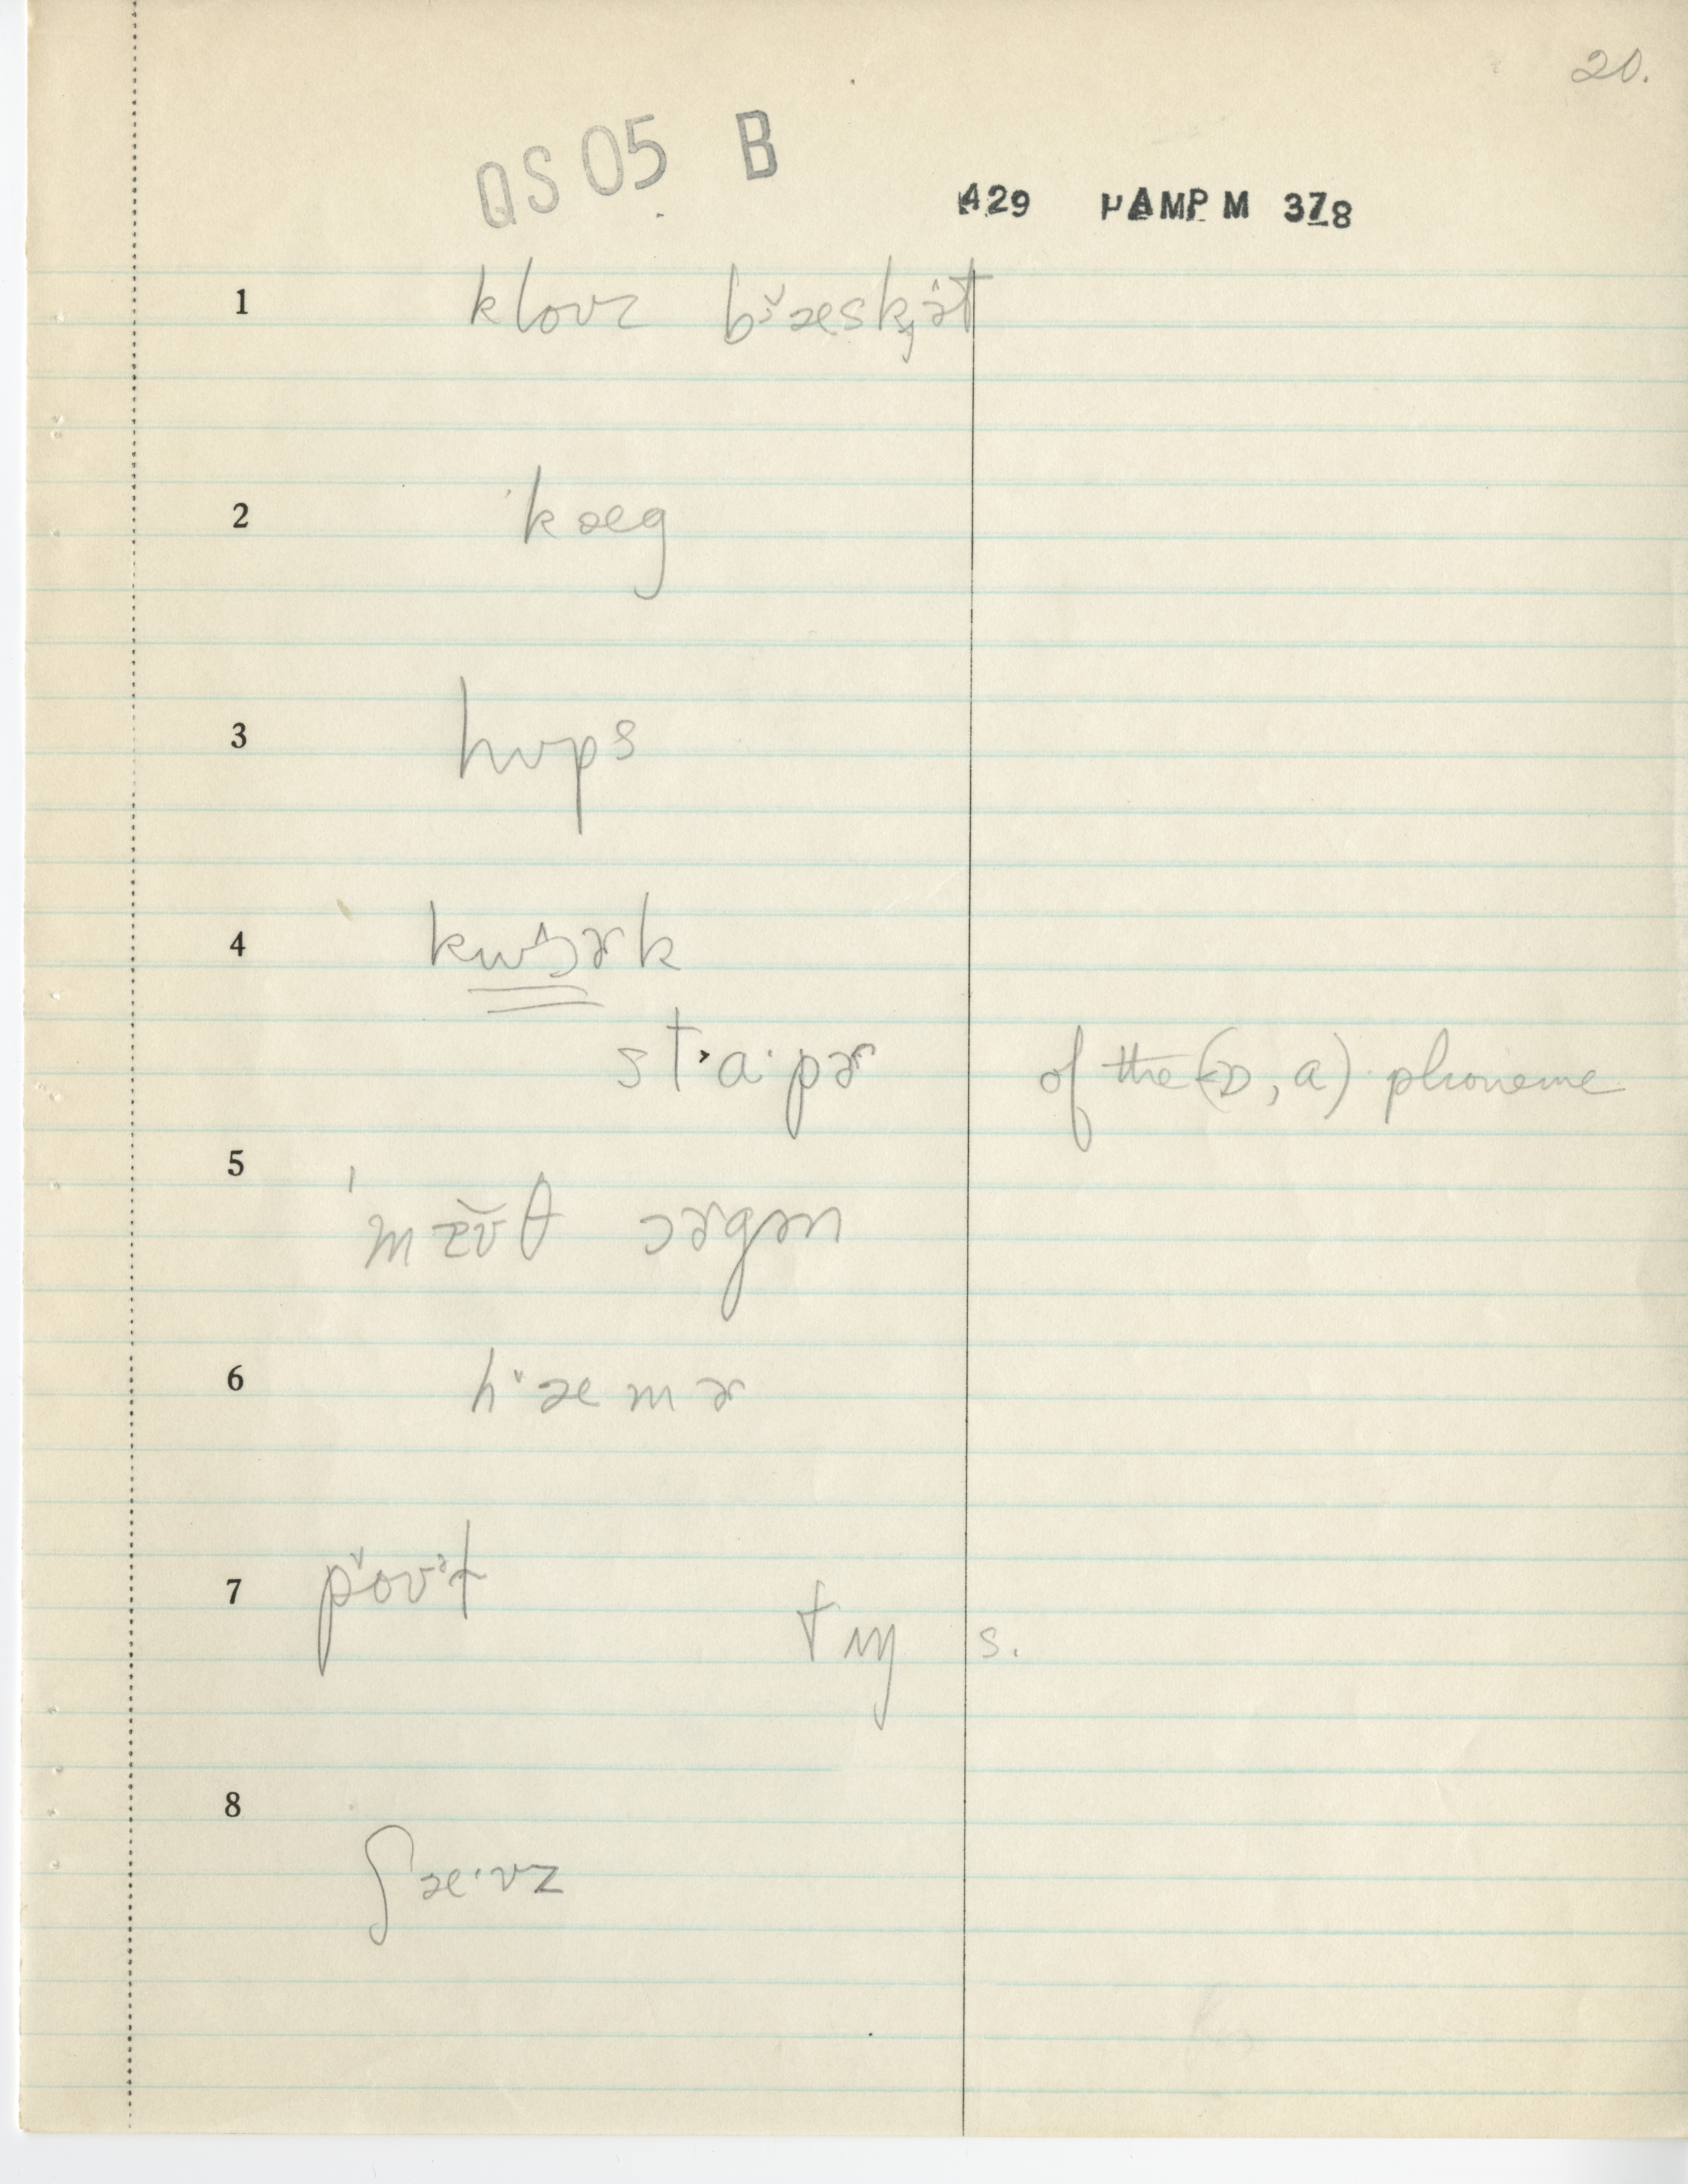 20.
QS 05 B
429 MAMP M 378
1 kloʊz bæ̌skɪ̯ət
2 kæg
3 hʊps
4 kwɔ̂ɚk
st·a·pɚ of the (ɒ, a) phoneme
5 ˈmæ̌ʊθ ɔɚgən
6 hæmɚ
7 pˇoʊᵊt tʌŋ s.
8 ʃæ·vz